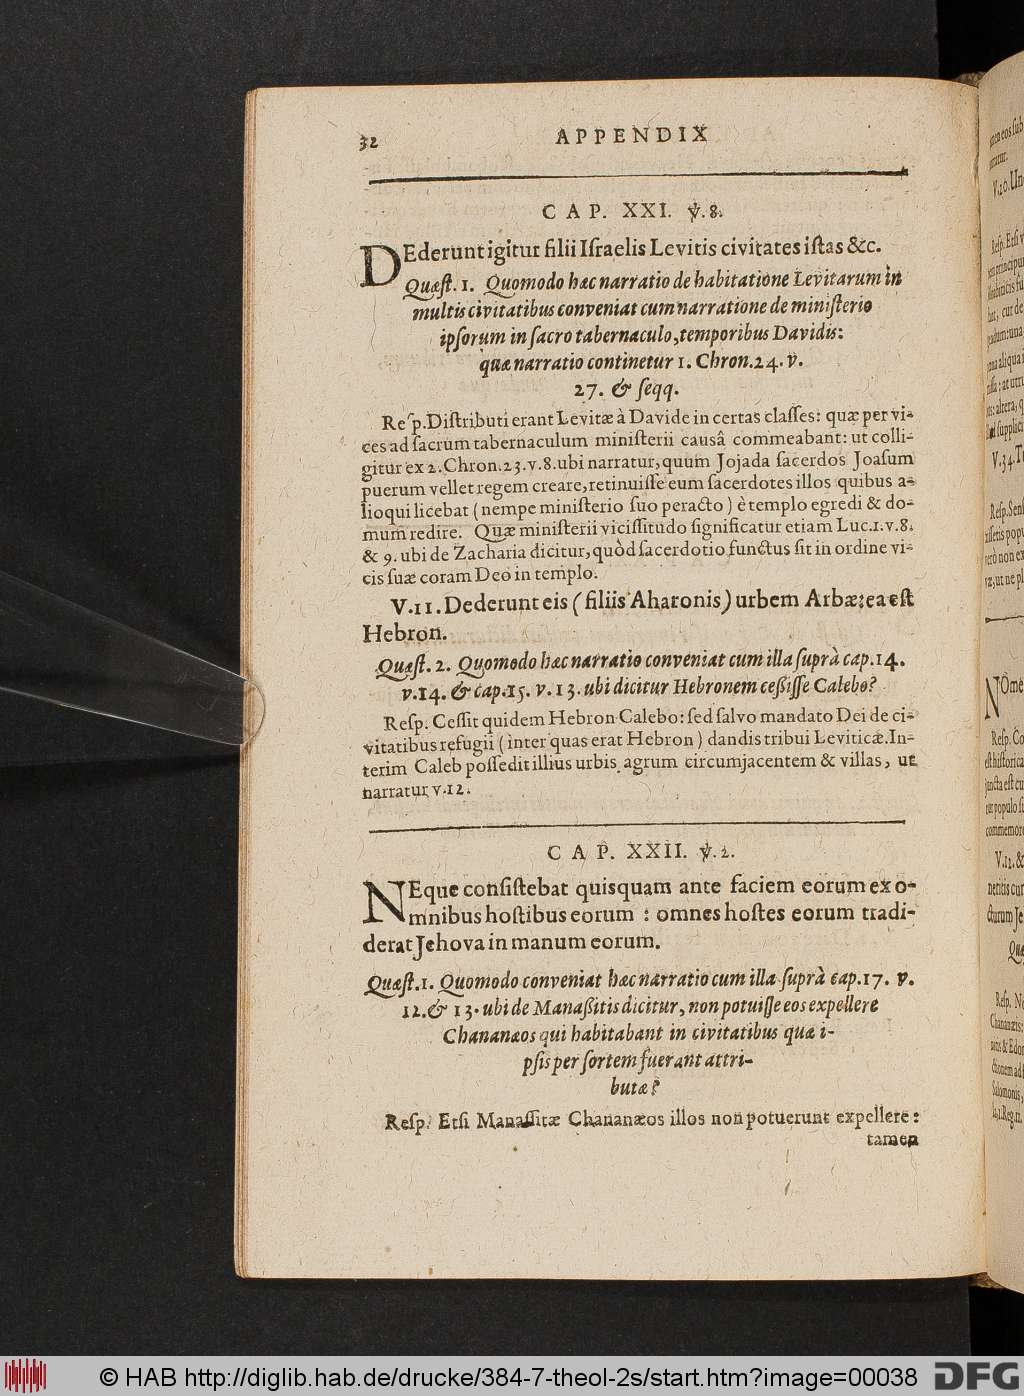 32 APPENDIX
CAP. XXI. ℣.8.
DEderunt igitur filii Iſraelis Levitis civitates iſtas &c.
Quæſt. 1. Quomodo hæc narratio de habitatione Levitarum in
multis civitatibus conveniat cum narratione de miniſterio
ipſorum in ſacro tabernaculo, temporibus Davidis:
quæ narratio continetur 1. Chron. 24. v.
27. & ſeqq.
Reſp. Diſtributi erant Levitæ à Davide in certas claſſes: quæ per vi-
ces ad ſacrum tabernaculum miniſterii causâ commeabant: ut colli-
gitur ex 2. Chron. 23. v. 8. ubi narratur, quum Jojada ſacerdos Joaſum
puerum vellet regem creare, retinuiſſe eum ſacerdotes illos quibus a-
lioqui licebat (nempe miniſterio ſuo peracto) è templo egredi & do-
mum redire. Quæ miniſterii viciſſitudo ſignificatur etiam Luc. 1. v. 8.
& 9. ubi de Zacharia dicitur, quòd ſacerdotio functus ſit in ordine vi-
cis ſuæ coram Deo in templo.
V. 11. Dederunt eis (filiis Aharonis) urbem Arbæ: ea eſt
Hebron.
Quæſt. 2. Quomodo hæc narratio conveniat cum illa ſuprà cap. 14.
v. 14. & cap. 15. v. 13. ubi dicitur Hebronem ceßiſſe Calebo?
Reſp. Ceſſit quidem Hebron Calebo: ſed ſalvo mandato Dei de ci-
vitatibus refugii (inter quas erat Hebron) dandis tribui Leviticæ. In-
terim Caleb poſſedit illius urbis agrum circumjacentem & villas, ut
narratur v. 12.
CAP. XXII. ℣.2.
NEque conſiſtebat quisquam ante faciem eorum ex o-
mnibus hoſtibus eorum: omnes hoſtes eorum tradi-
derat Jehova in manum eorum.
Quæſt. 1. Quomodo conveniat hæc narratio cum illa ſuprà cap. 17. v.
12. & 13. ubi de Manaßitis dicitur, non potuiſſe eos expellere
Chananæos qui habitabant in civitatibus quæ i-
pſis per ſortem fuerant attri-
butæ?
Reſp. Etſi Manaſſitæ Chananæos illos non potuerunt expellere:
tamen
© HAB http://diglib.hab.de/drucke/384-7-theol-2s/start.htm?image=00038
DFG